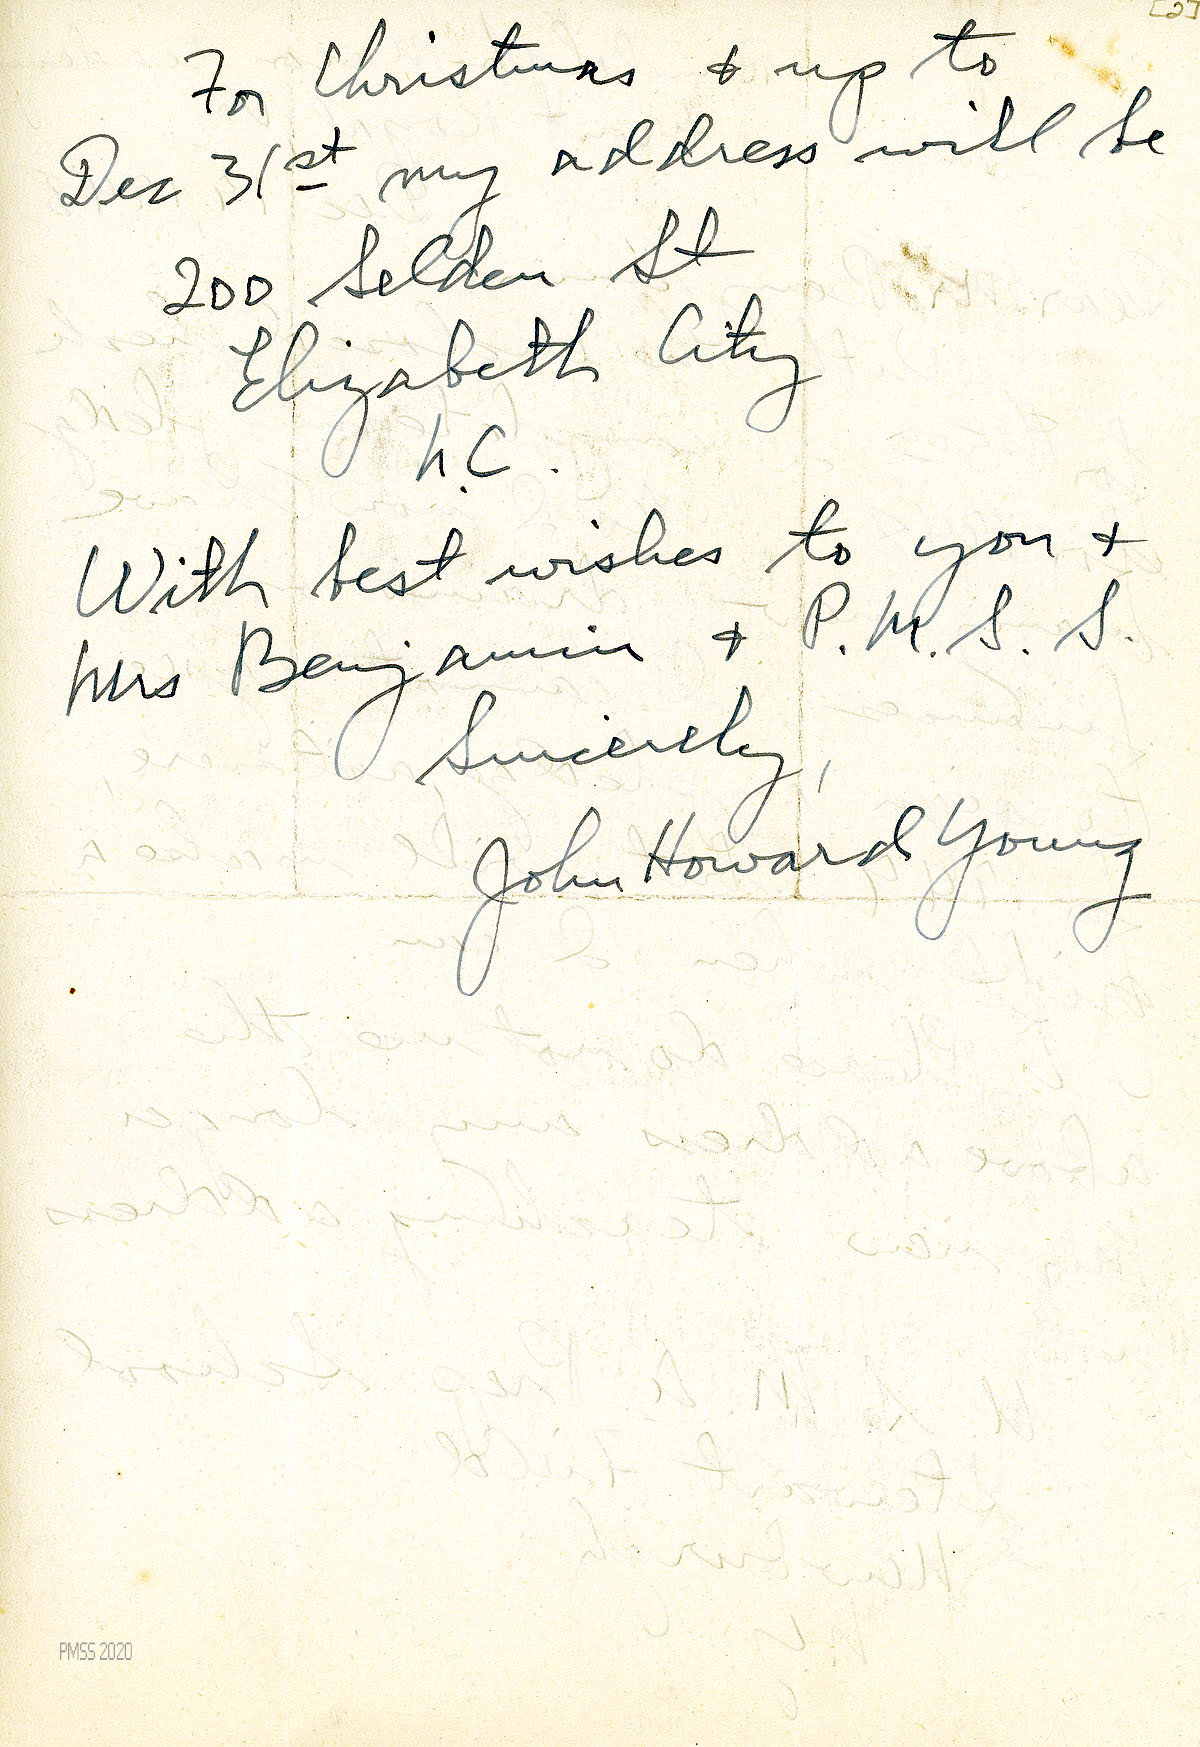 [2]
For Christmas & up to
Dec 31st my address will be
200 Selden St
Elizabeth City
N.C.
With best wishes to you &
Mrs Benjamin & P.M.S.S.
Sincerely,
John Howard Young
PMSS 2020